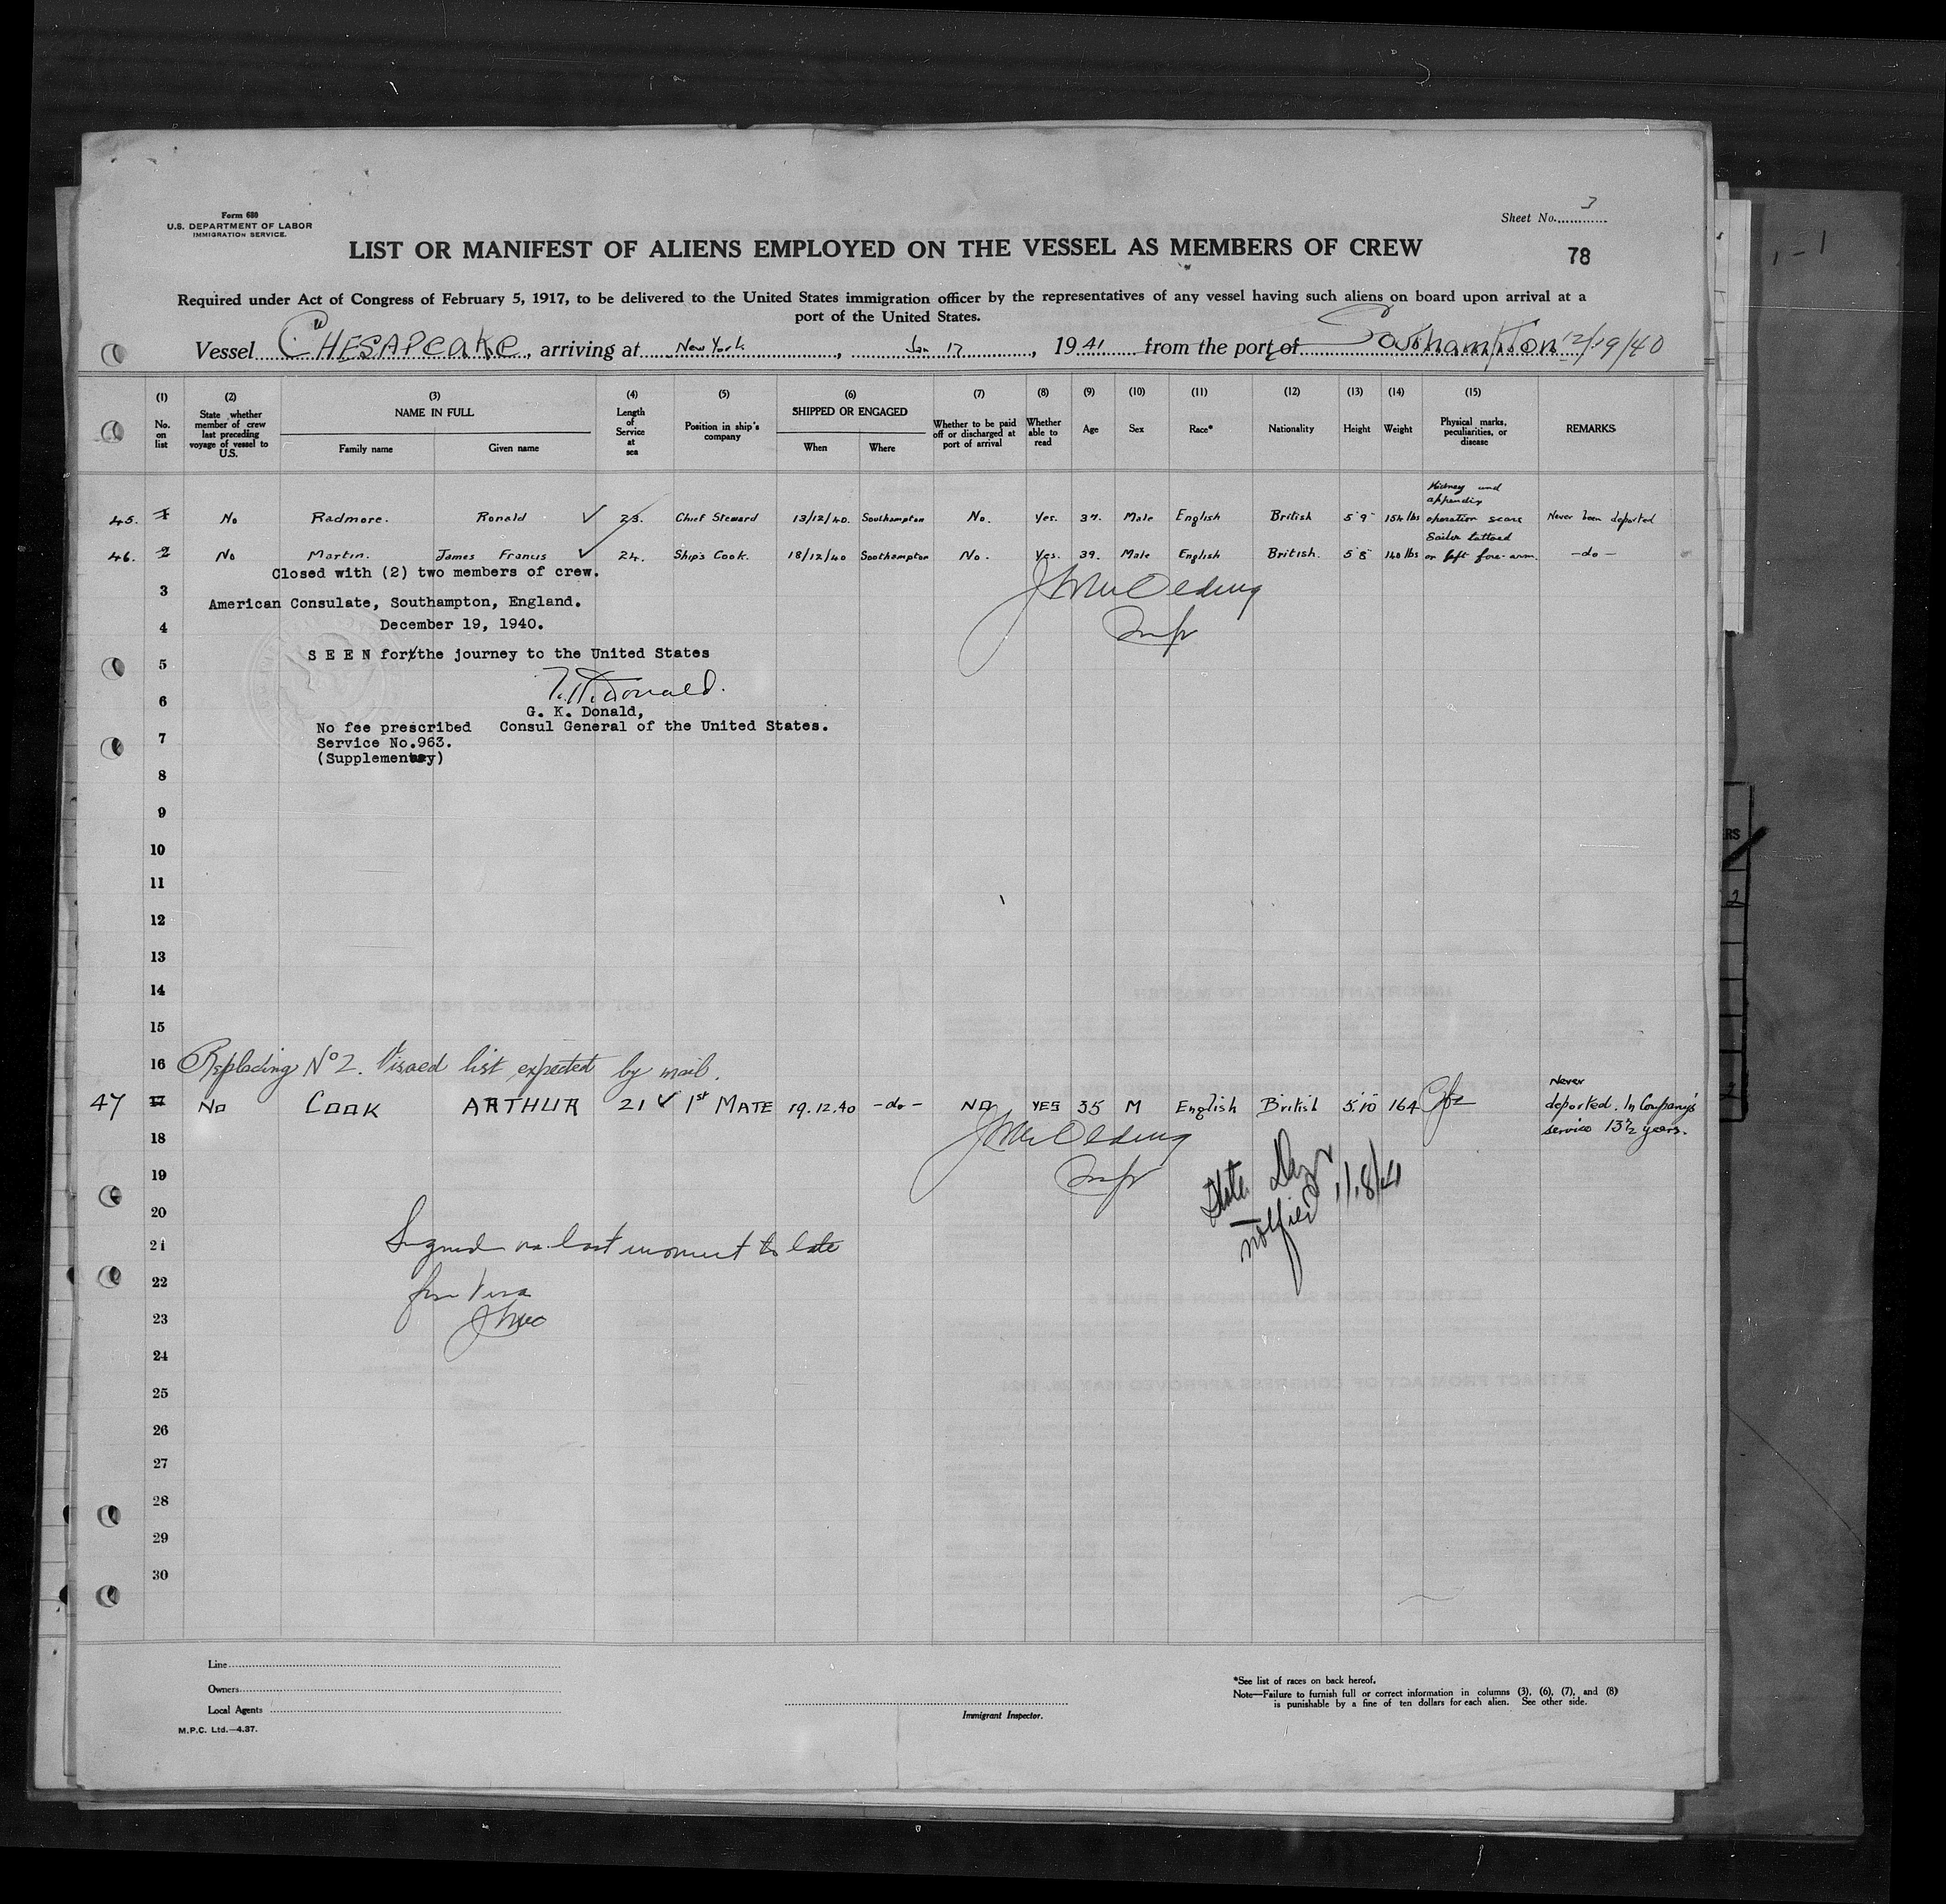 Form 680
U.S. DEPARTMENT OF LABOR
IMMIGRATION SERVICE.
Sheet No. 3
LIST OR MANIFEST OF ALIENS EMPLOYED ON THE VESSEL AS MEMBERS OF CREW
78
Required under Act of Congress of February 5, 1917, to be delivered to the United States immigration officer by the representatives of any vessel having such aliens on board upon arrival at a
port of the United States.
Vessel CHESAPEAKE, arriving at New York, Jan 17, 1941 from the port of Southampton 12/19/40
(1) (2) (3) (4) (5) (6) (7) (8) (9) (10) (11) (12) (13) (14) (15)
No. on list
State whether member of crew last preceding voyage of vessel to U.S.
NAME IN FULL
Family name
Given name
Length of Service at sea
Position in ship's company
SHIPPED OR ENGAGED
When
Where
Whether to be paid off or discharged at port of arrival
Whether able to read
Age
Sex
Race*
Nationality
Height
Weight
Physical marks, peculiarities, or disease
REMARKS
45. 1 No Radmore. Ronald ✓ 23. Chief Steward 13/12/40. Southampton No. Yes. 37. Male English British 5'9" 154 lbs Kidney and appendix operation scars Never been deported
46. 2 No Martin. James Francis ✓ 24. Ship's Cook. 18/12/40 Southampton No. Yes. 39. Male English British. 5'8" 140 lbs Sailor tattooed on left fore-arm. -do-
Closed with (2) two members of crew.
3
American Consulate, Southampton, England.
4
December 19, 1940.
SEEN for the journey to the United States
5
6
G. K. Donald,
No fee prescribed Consul General of the United States.
7
Service No.963.
(Supplementary)
8
9
10
11
12
13
14
15
16 Replacing No 2. Visaed list expected by mail.
47 17 No COOK ARTHUR 21 ✓ 1st MATE 19.12.40 -do- NO YES 35 M English British 5.10 164 Never deported. In Company's service 13½ years.
18
19
State Dep notified 1/18/41
20
21 Signed on last moment to late
22 for Visa
23
24
25
26
27
28
29
30
Line
Owners
Local Agents
M.P.C. Ltd.—4.37.
Immigrant Inspector.
*See list of races on back hereof.
Note—Failure to furnish full or correct information in columns (3), (6), (7), and (8)
is punishable by a fine of ten dollars for each alien. See other side.